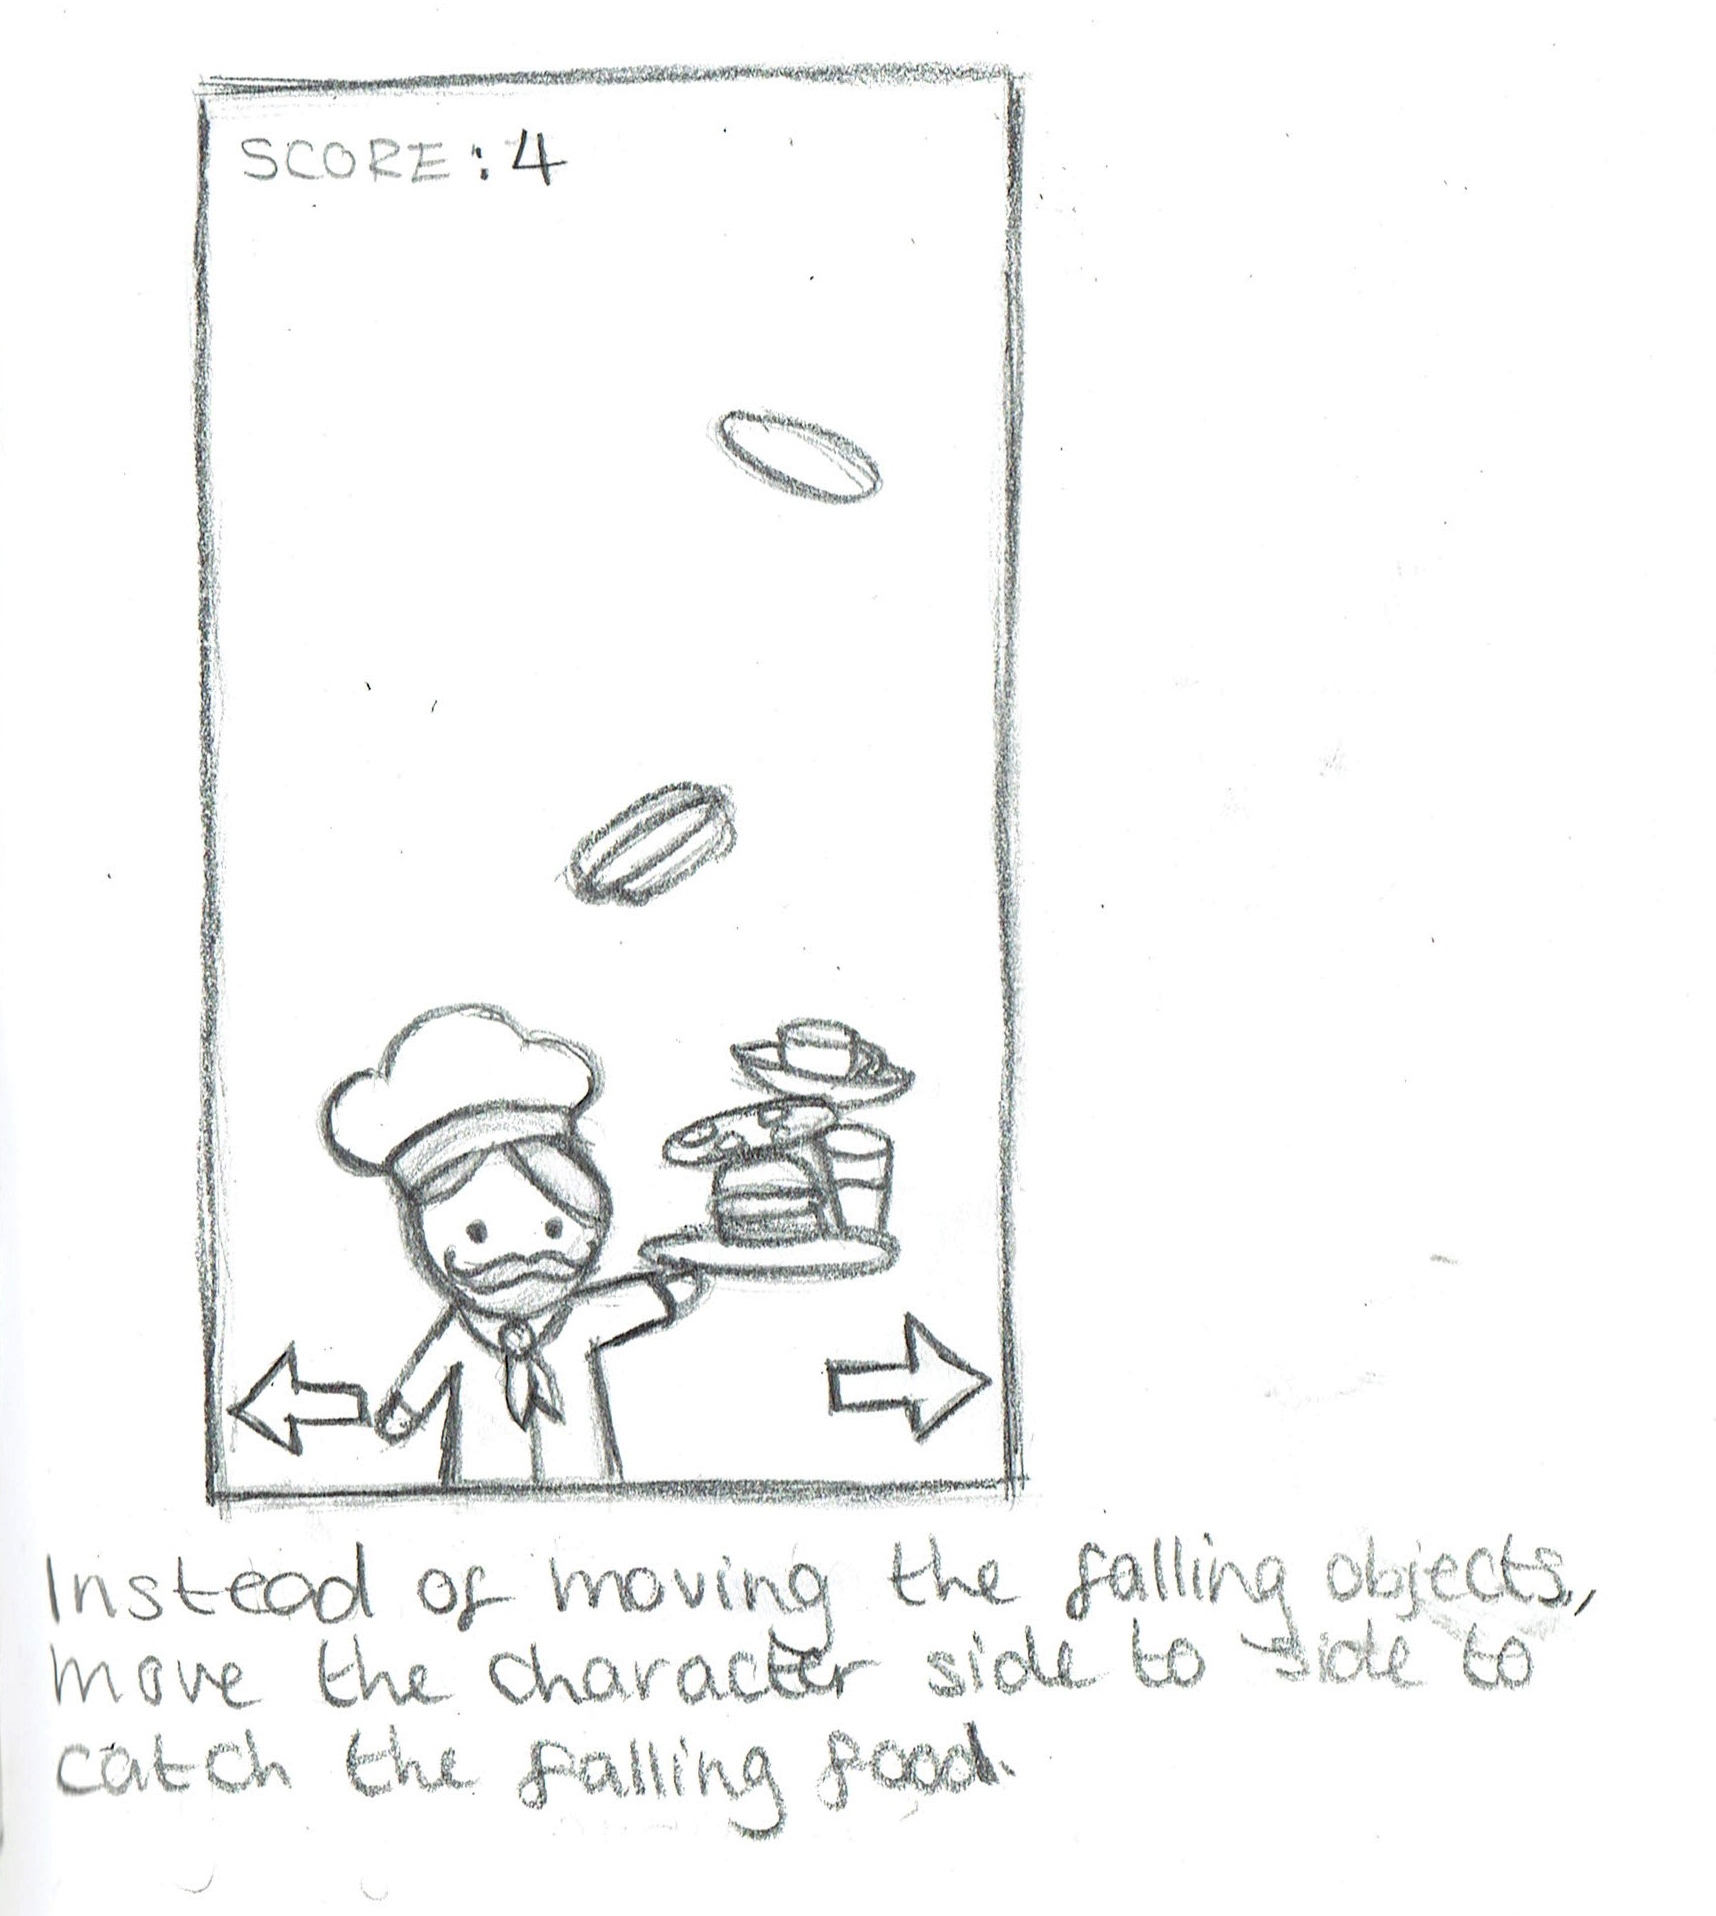 SCORE: 4
Instead of moving the falling objects,
move the character side to side to
catch the falling food.